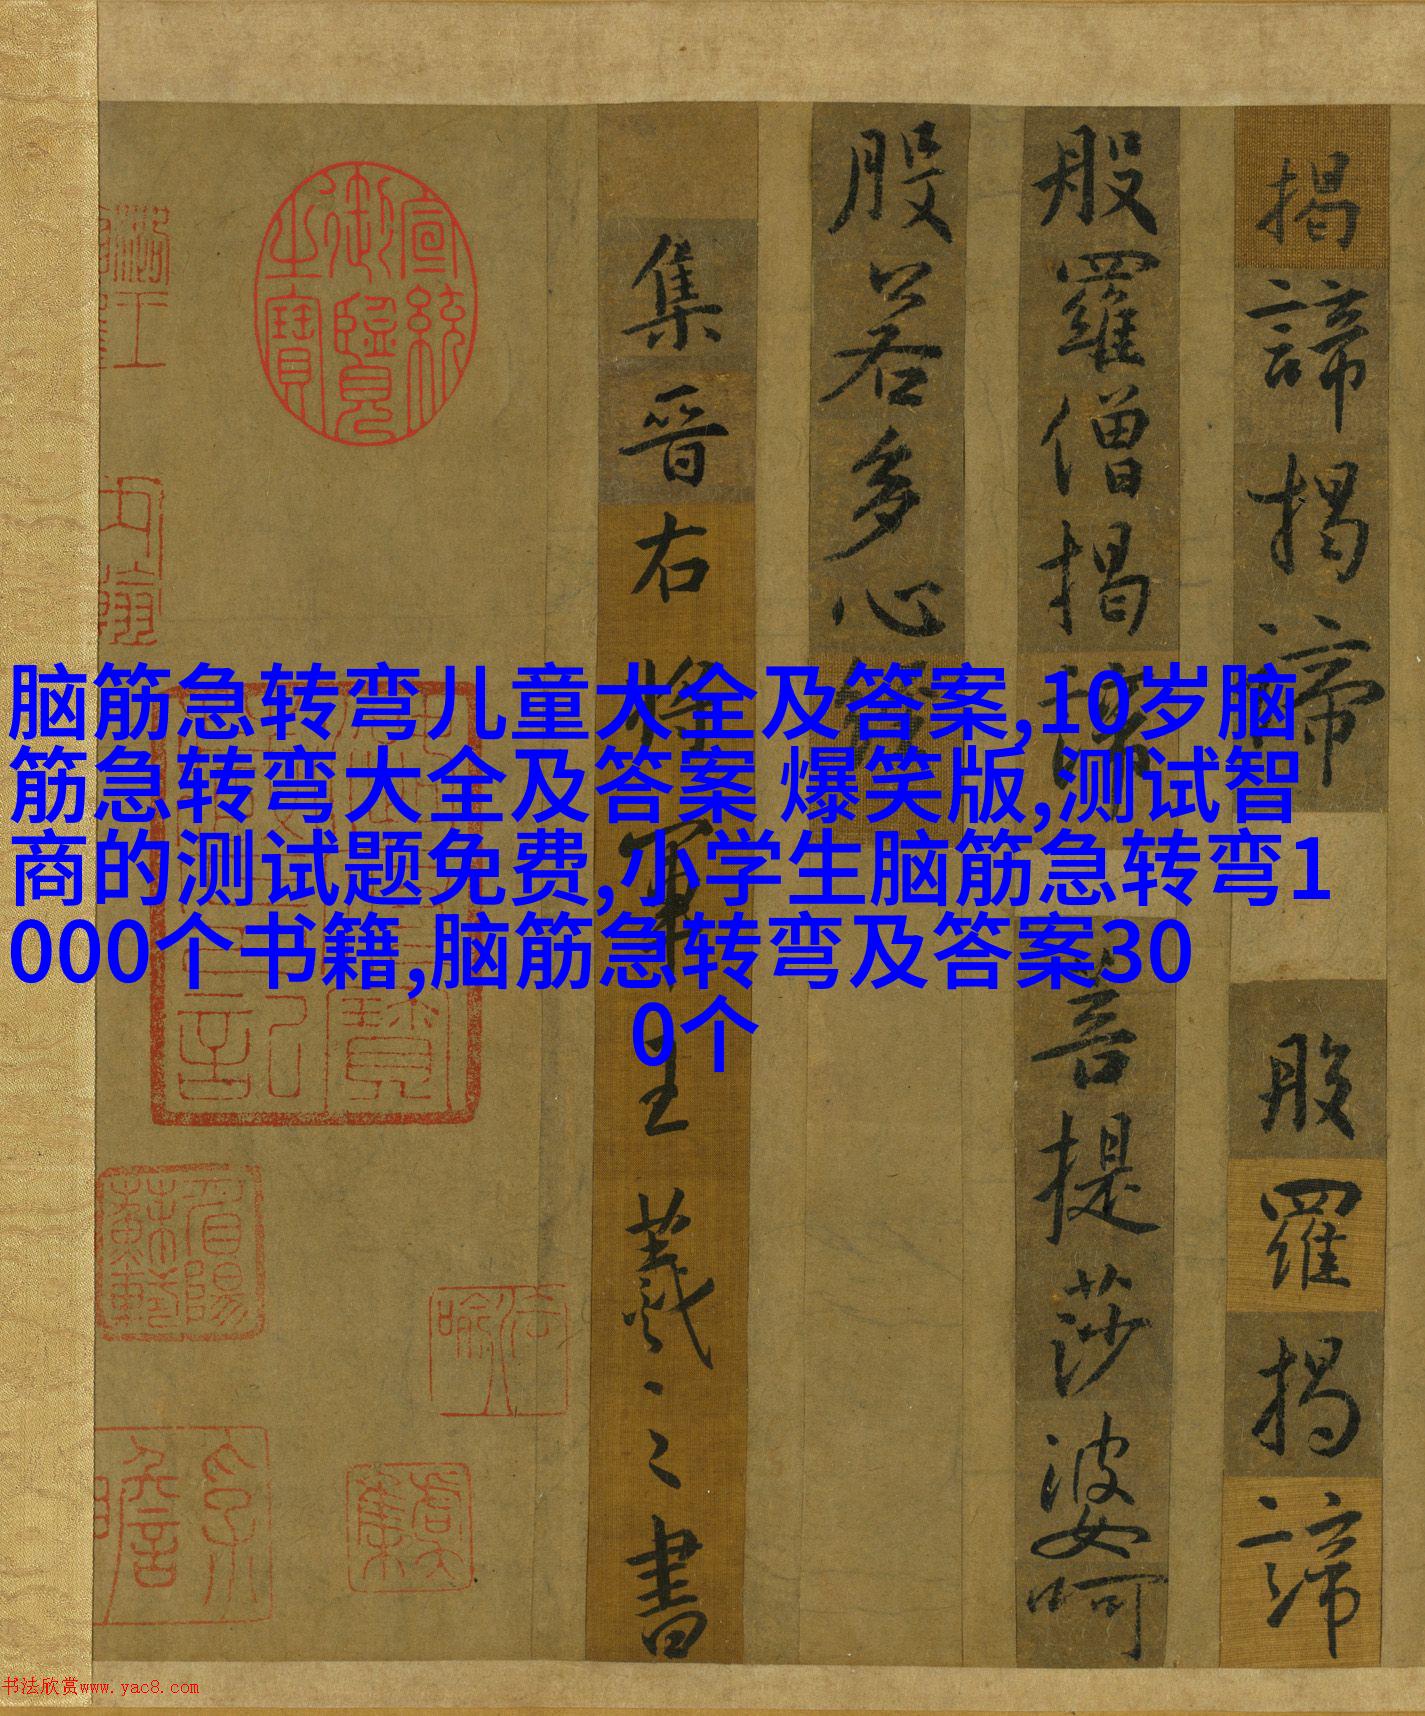 脑筋急转弯儿童大全及答案,10岁脑
筋急转弯大全及答案 爆笑版,测试智
商的测试题免费,小学生脑筋急转弯1
000个书籍,脑筋急转弯及答案30
0个
揭諦揭諦
般羅揭諦
般羅僧揭諦
菩提莎婆呵
般若多心經
集晉右將軍王羲之書
宣統御覽之寶
眉陽蘇軾
書法欣赏www.yac8.com